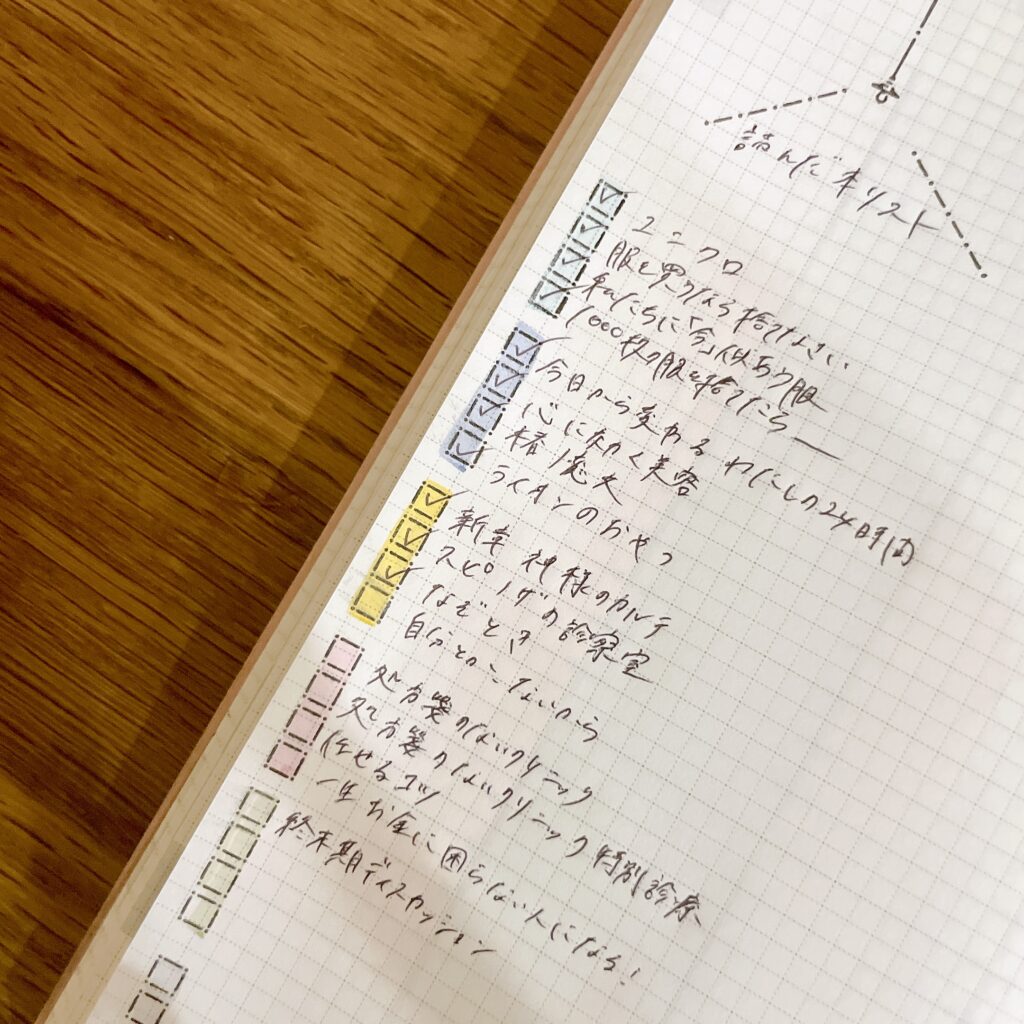 読んだ本リスト
ユニクロ
服を買うなら捨てなさい
私たちに「今」似合う服
1000枚の服を捨てたら
今日から変わる わたしの24時間
心に効く美容
椿ノ恋文
ライオンのおやつ
新章 神様のカルテ
スピノザの診察室
なぞとき
自分とか ないから
処方箋のないクリニック
処方箋のないクリニック 特別診療
任せるコツ
一生お金に困らない人になる！
終末期ディスカッション